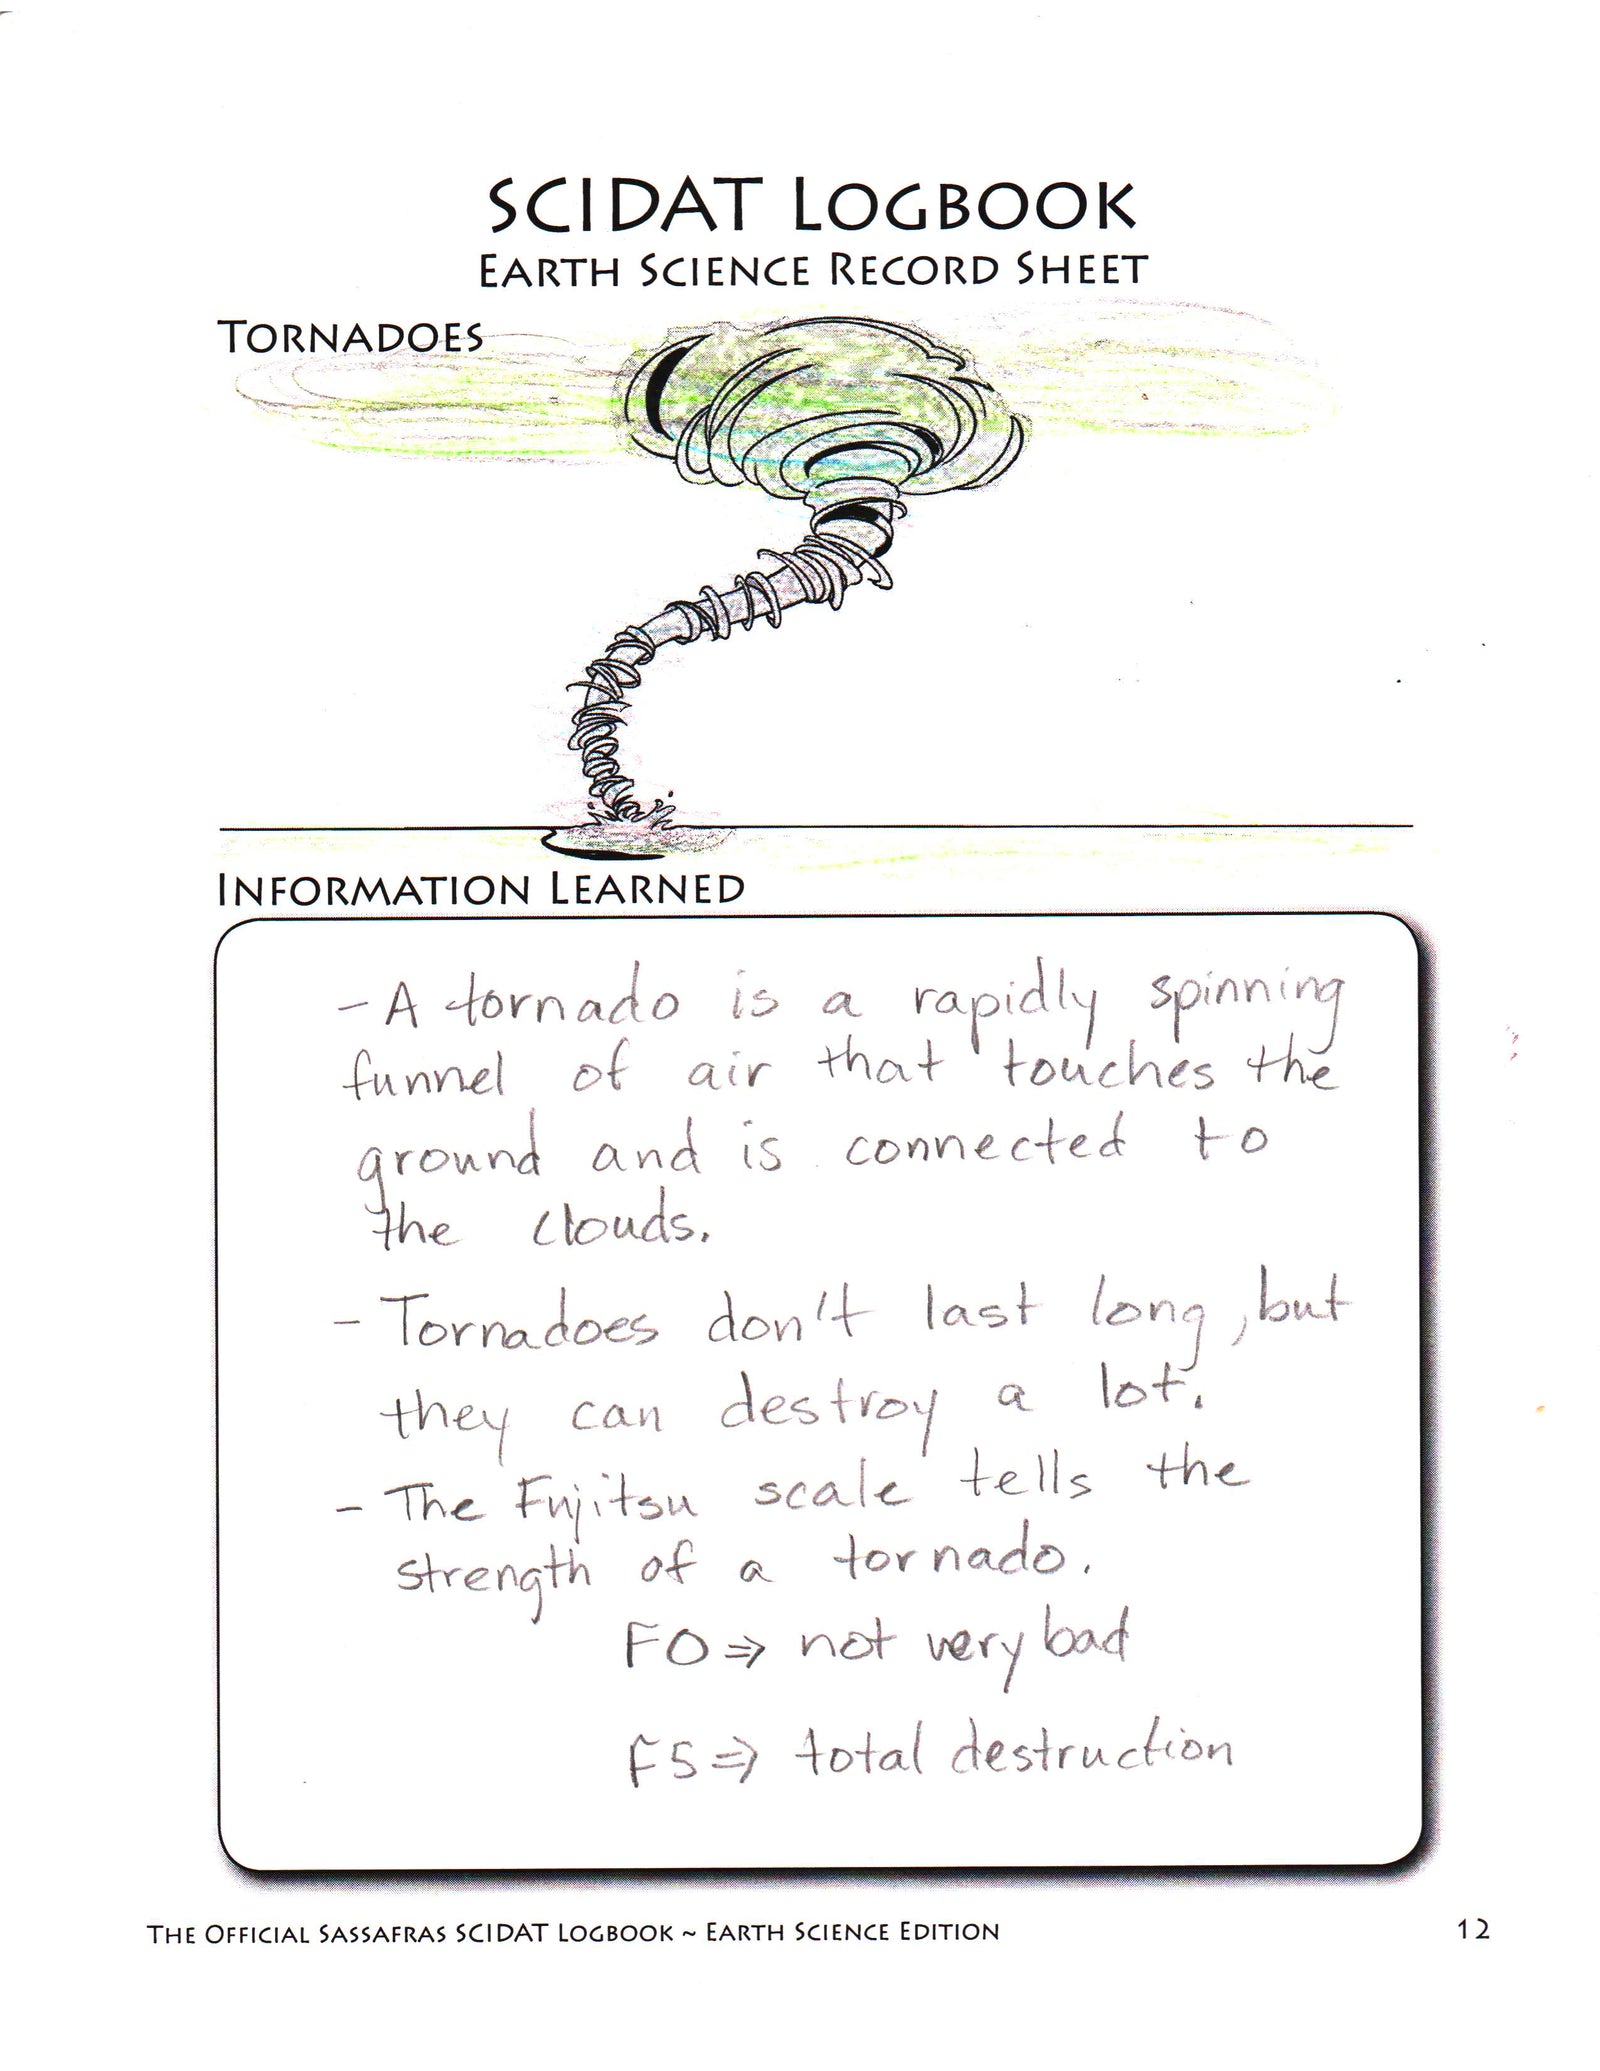 SCIDAT LOGBOOK
EARTH SCIENCE RECORD SHEET
TORNADOES
INFORMATION LEARNED
- A tornado is a rapidly spinning
funnel of air that touches the
ground and is connected to
the clouds.
- Tornadoes don't last long, but
they can destroy a lot.
- The Fujitsu scale tells the
strength of a tornado.
F0 ⇒ not very bad
F5 ⇒ total destruction
THE OFFICIAL SASSAFRAS SCIDAT LOGBOOK ~ EARTH SCIENCE EDITION
12